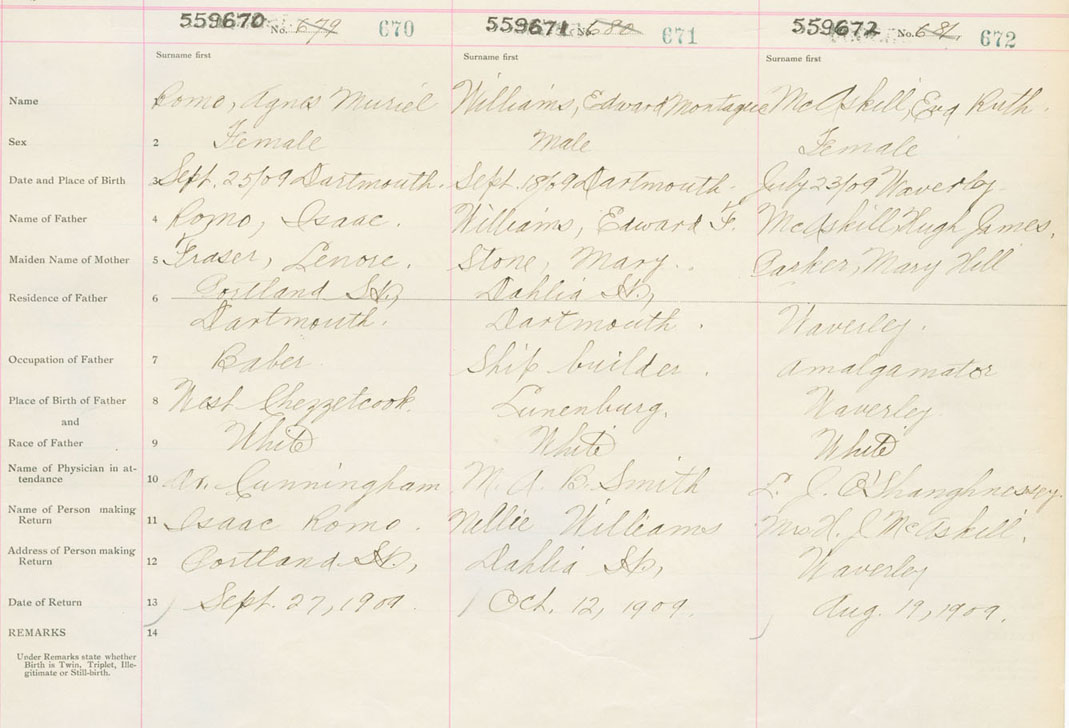 559670 No. 679 670 559671 No. 680 671 559672 No. 681 672
Surname first Surname first Surname first
Name 1 Romo, Agnes Muriel Williams, Edward Montague McAskill, Eva Ruth.
Sex 2 Female Male Female
Date and Place of Birth 3 Sept. 25/09 Dartmouth. Sept. 18/09 Dartmouth. July 23/09 Waverley.
Name of Father 4 Romo, Isaac. Williams, Edward F. McAskill, Hugh James.
Maiden Name of Mother 5 Fraser, Lenore. Stone, Mary. Parker, Mary Hill
Portland St., Dahlia St.,
Residence of Father 6
Dartmouth. Dartmouth. Waverley.
Occupation of Father 7 Baber Ship builder. Amalgamator
Place of Birth of Father 8 West Chezzetcook. Lunenburg. Waverley.
and
Race of Father 9 White White White
Name of Physician in at-
tendance 10 Dr. Cunningham M. A. B. Smith L. J. O'Shanghnessey.
Name of Person making
Return 11 Isaac Romo. Nellie Williams Mrs H. J. McAskill.
Address of Person making
Return 12 Portland St., Dahlia St., Waverley
Date of Return 13 Sept. 27, 1909. Oct. 12, 1909. Aug. 19, 1909.
REMARKS 14
Under Remarks state whether
Birth is Twin, Triplet, Ille-
gitimate or Still-birth.